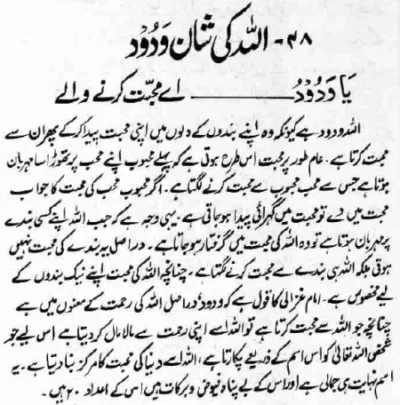 ۴۸۔ اللہ کی شان وَدُوْدُ
یَا وَدُوْدُ ــــــــــ اے محبّت کرنے والے
اللہ ودود ہے کیونکہ وہ اپنے بندوں کے دلوں میں اپنی محبت پیدا کر کے پھر ان سے
محبت کرتا ہے۔ عام طور پر محبت اس طرح ہوتی ہے کہ پہلے محبوب اپنے محب پر تھوڑا سا مہربان
ہوتا ہے جس سے محب محبوب سے محبت کرنے لگتا ہے۔ اگر محبوب محب کی محبت کا جواب
محبت میں دے تو محبت میں گہرائی پیدا ہو جاتی ہے۔ یہی وجہ ہے کہ جب اللہ اپنے کسی بندے
پر مہربان ہوتا ہے تو وہ اللہ کی محبت میں گرفتار ہو جاتا ہے۔ در اصل یہ بندے کی محبت نہیں
ہوتی بلکہ اللہ ہی بندے سے محبت کرنے لگتا ہے۔ چنانچہ اللہ کی محبت اپنے نیک بندوں کے
لیے مخصوص ہے۔ امام غزالی کا قول ہے کہ ودود در اصل اللہ کی رحمت کے معنوں میں ہے
چنانچہ جو اللہ سے محبت کرتا ہے تو اللہ اسے اپنی رحمت سے مالا مال کر دیتا ہے اس لیے جو
شخص اللہ تعالیٰ کو اس اسم کے ذریعے پکارتا ہے، اللہ اسے دنیا کی محبت کا مرکز بنا دیتا ہے۔ یہ
اسم نہایت ہی جمالی ہے اور اس کے بے پناہ فیوض و برکات ہیں اس کے اعداد ۲۰ ہیں۔